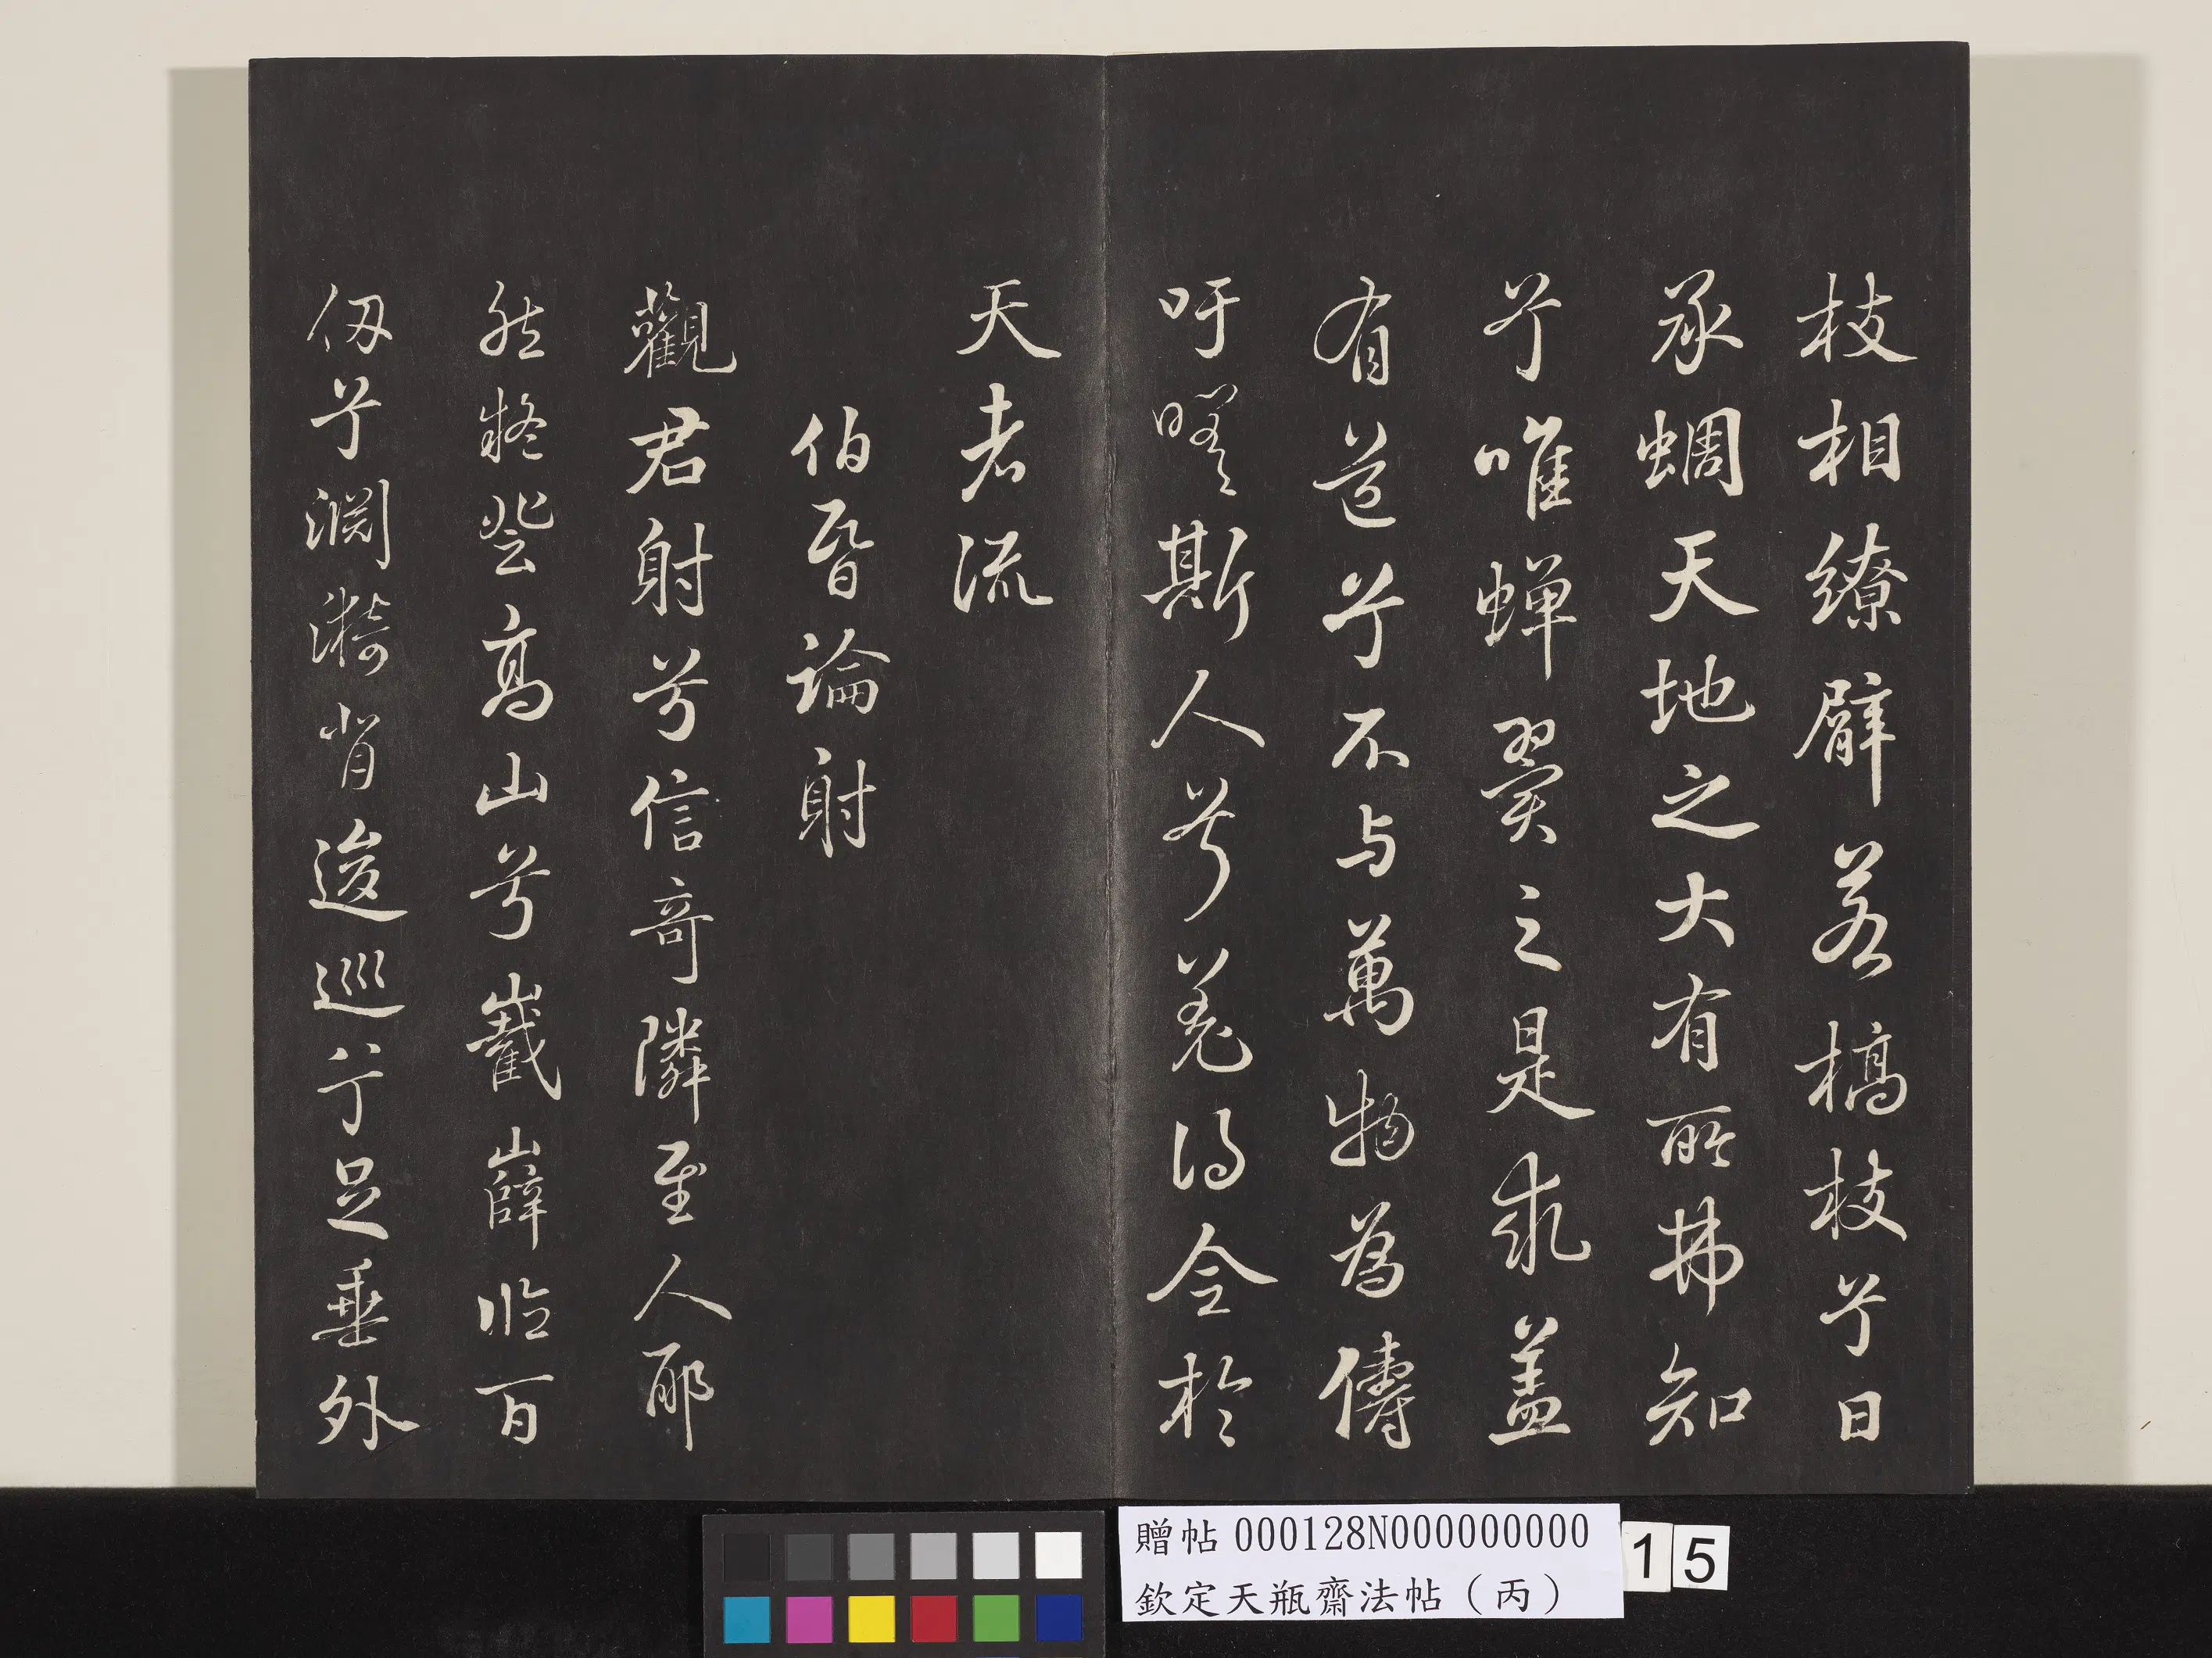 枝相繚臂若槁枝兮日
承蜩天地之大有所弗知
兮唯蟬翼之是求蓋
有道兮不与萬物為儔
吁嗟斯人兮羌得全於
天者流
伯昏論射
觀君射兮信奇隣至人耶
然登高山兮巀嶭臨百
仞兮淵漪背逡巡兮足垂外
贈帖 000128N000000000
欽定天瓶齋法帖（丙）
15